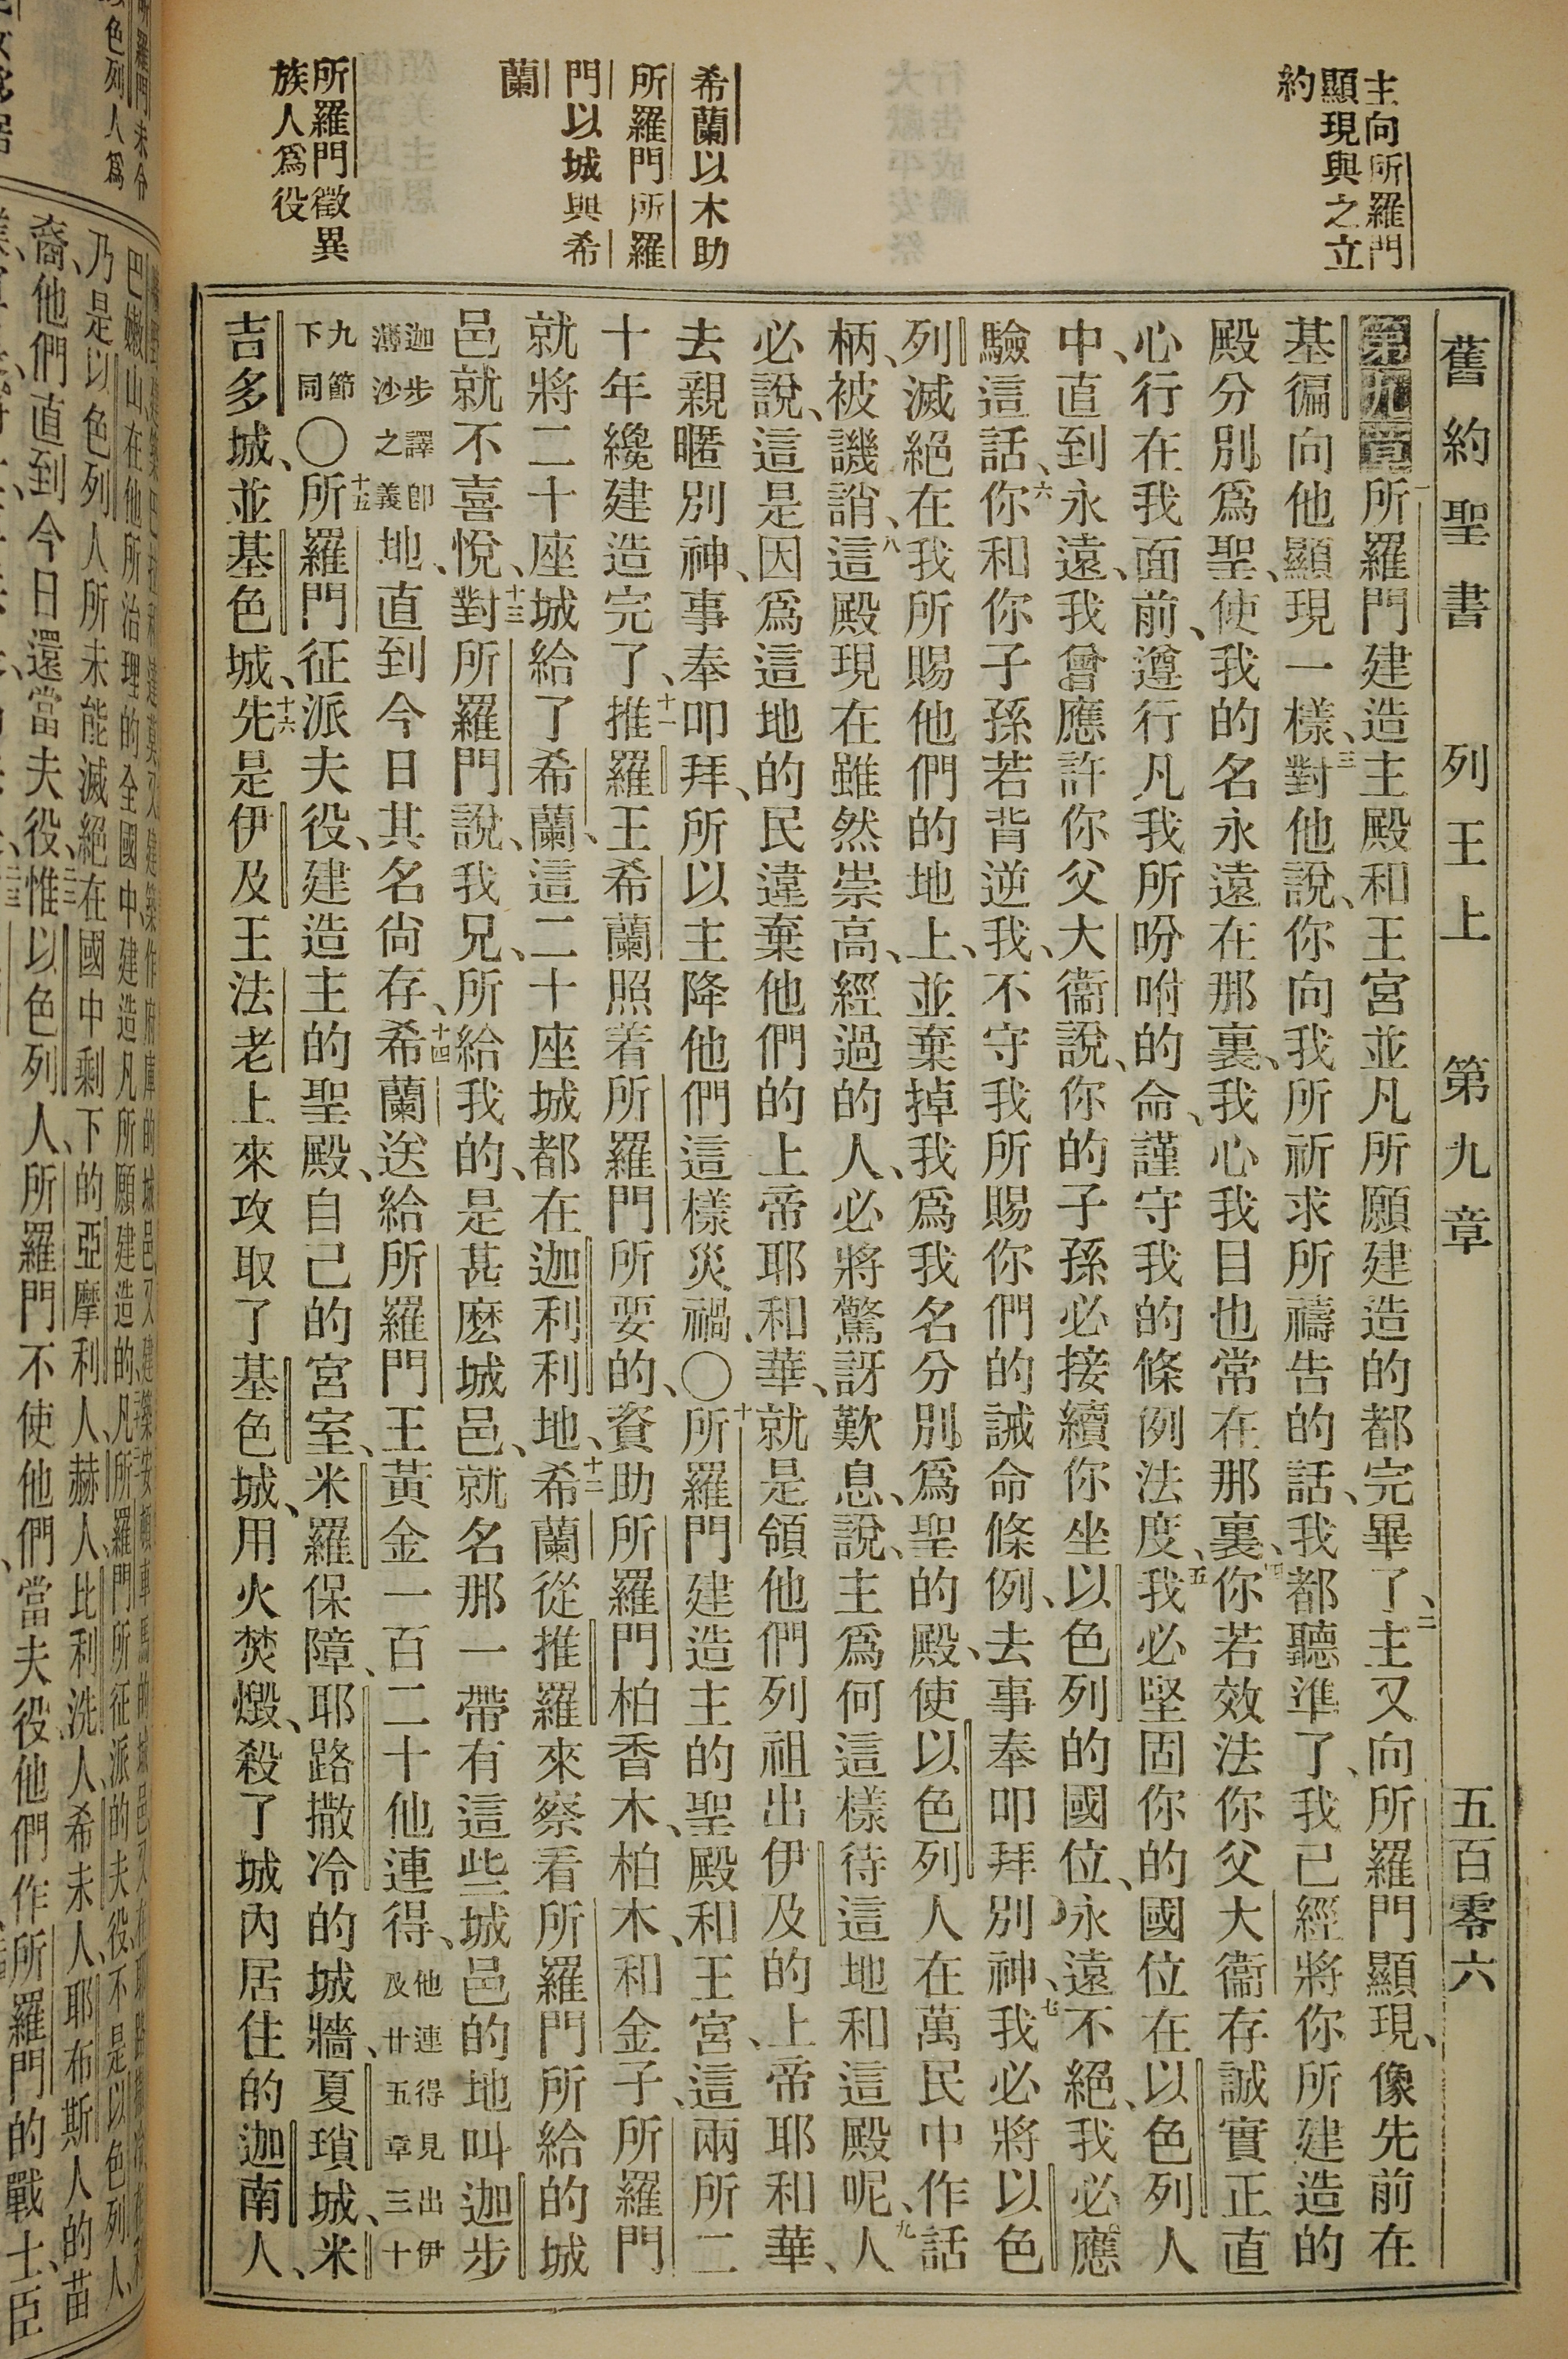 舊約聖書 列王上 第九章 五百零六
主向所羅門
顯現與之立
約
希蘭以木助
所羅門所羅
門以城與希
蘭
所羅門徵異
族人爲役
第九章一所羅門建造主殿和王宮並凡所願建造的都完畢了、二主又向所羅門顯現、像先前在
基徧向他顯現一樣、三對他說、你向我所祈求所禱告的話、我都聽準了、我已經將你所建造的
殿分別爲聖、使我的名永遠在那裏、我心我目也常在那裏、四你若效法你父大衞存誠實正直
心行在我面前、遵行凡我所吩咐的命、謹守我的條例法度、五我必堅固你的國位在以色列人
中、直到永遠、我曾應許你父大衞說、你的子孫必接續你坐以色列的國位、永遠不絕、我必應
驗這話、六你和你子孫若背逆我、不守我所賜你們的誡命條例、去事奉叩拜別神、七我必將以色
列滅絕在我所賜他們的地上、並棄掉我爲我名分別爲聖的殿、使以色列人在萬民中作話
柄、被譏誚、八這殿現在雖然崇高、經過的人、必將驚訝歎息、說、主爲何這樣待這地和這殿呢、九人
必說、這是因爲這地的民違棄他們的上帝耶和華、就是領他們列祖出伊及的上帝耶和華、
去親暱別神、事奉叩拜、所以主降他們這樣災禍、〇十所羅門建造主的聖殿和王宮、這兩所二
十年纔建造完了、十一推羅王希蘭照着所羅門所要的、資助所羅門柏香木、柏木、和金子、所羅門
就將二十座城給了希蘭、這二十座城都在迦利利地、十二希蘭從推羅來察看所羅門所給的城
邑就不喜悅、十三對所羅門說、我兄、所給我的、是甚麽城邑、就名那一帶有這些城邑的地叫迦步
迦步譯卽薄沙之義地、直到今日其名尙存、十四希蘭送給所羅門王黃金一百二十他連得、他連得見出伊及廿五章三十
九節下同〇十五所羅門征派夫役、建造主的聖殿、自己的宮室、米羅保障、耶路撒冷的城牆、夏瑣城、米
吉多城、並基色城、十六先是伊及王法老上來攻取了基色城、用火焚燬、殺了城內居住的迦南人、
巴嫩山在他所治理的全國中、建造凡所願建造的、凡所羅門所征派的夫役、不是以色列人、
乃是以色列人所未能滅絕在國中剩下的亞摩利人、赫人、比利洗人、希未人、耶布斯人的苗
裔、他們直到今日還當夫役、惟以色列人、所羅門不使他們當夫役、他們作所羅門的戰士、臣